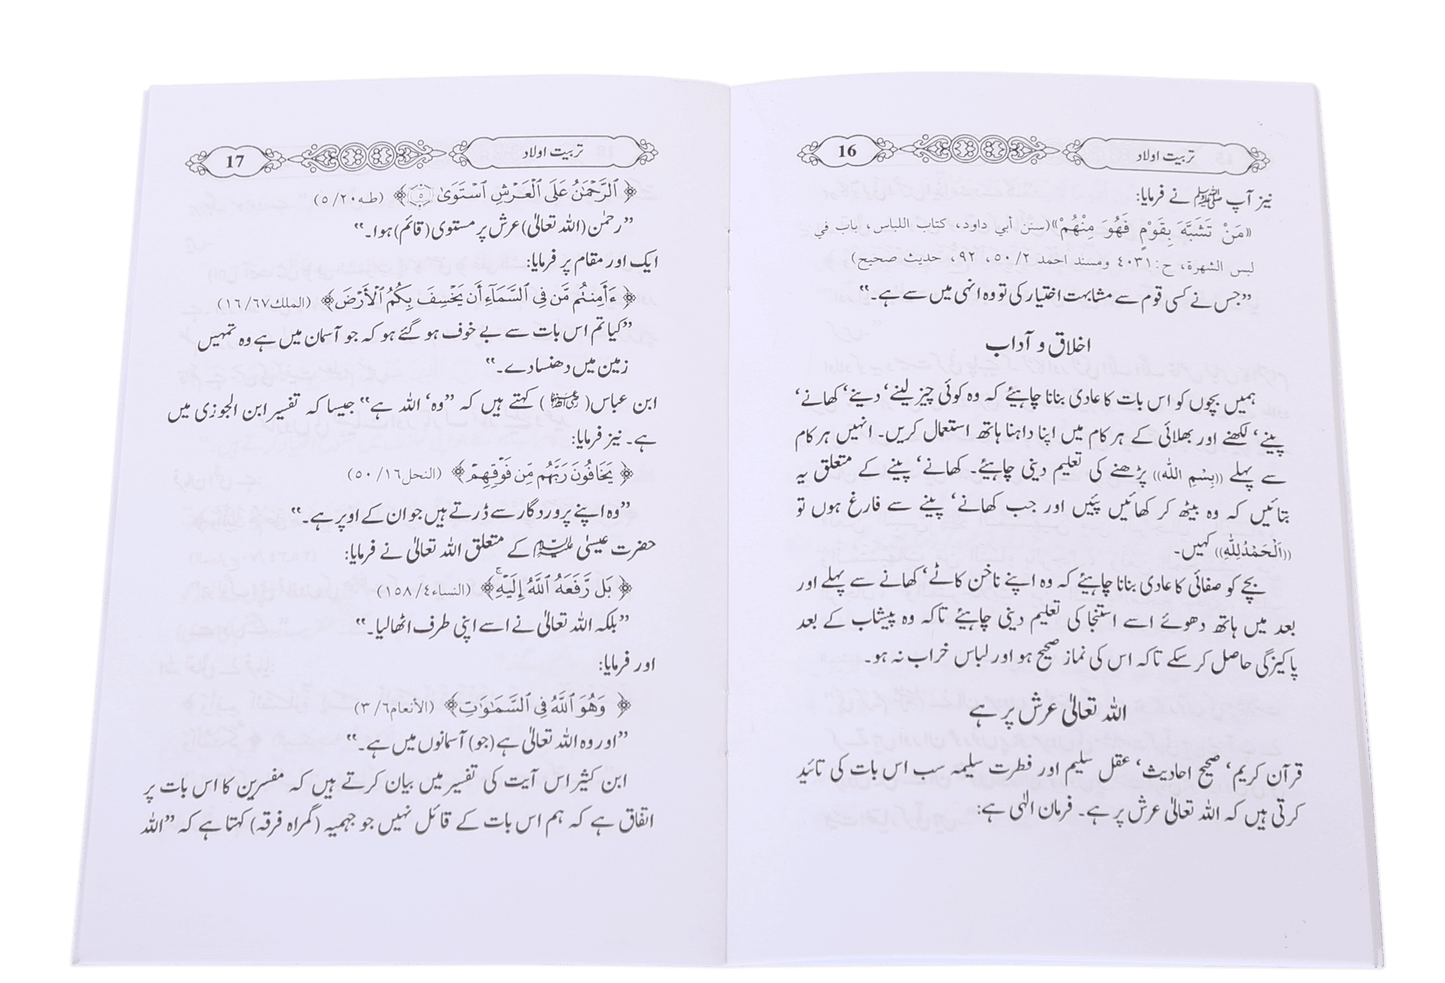 تربیت اولاد 16
نیز آپ ﷺ نے فرمایا:
«مَنْ تَشَبَّهَ بِقَوْمٍ فَهُوَ مِنْهُمْ»(سنن أبي داود، كتاب اللباس، باب في
لبس الشهرة، ح:٤٠٣١ ومسند احمد ٥٠/٢، ٩٢، حديث صحيح)
”جس نے کسی قوم سے مشابہت اختیار کی تو وہ انہی میں سے ہے۔“
اخلاق و آداب
ہمیں بچوں کو اس بات کا عادی بنانا چاہیئے کہ وہ کوئی چیز لینے‘ دینے‘ کھانے‘
پینے‘ لکھنے اور بھلائی کے ہر کام میں اپنا داہنا ہاتھ استعمال کریں۔ انہیں ہر کام
سے پہلے ((بِسْمِ اللہ)) پڑھنے کی تعلیم دینی چاہیئے۔ کھانے‘ پینے کے متعلق یہ
بتائیں کہ وہ بیٹھ کر کھائیں پئیں اور جب کھانے‘ پینے سے فارغ ہوں تو
((اَلْحَمْدُلِلّٰہِ)) کہیں۔
بچے کو صفائی کا عادی بنانا چاہیئے کہ وہ اپنے ناخن کاٹے‘ کھانے سے پہلے اور
بعد میں ہاتھ دھوئے اسے استنجا کی تعلیم دینی چاہیئے تاکہ وہ پیشاب کے بعد
پاکیزگی حاصل کر سکے تاکہ اس کی نماز صحیح ہو اور لباس خراب نہ ہو۔
اللہ تعالیٰ عرش پر ہے
قرآن کریم‘ صحیح احادیث‘ عقل سلیم اور فطرت سلیمہ سب اس بات کی تائید
کرتی ہیں کہ اللہ تعالیٰ عرش پر ہے۔ فرمان الٰہی ہے:
تربیت اولاد 17
﴿ ٱلرَّحْمَٰنُ عَلَى ٱلْعَرْشِ ٱسْتَوَىٰ ۝٥﴾ (طه٢٠/٥)
”رحمٰن (اللہ تعالیٰ) عرش پر مستوی (قائم) ہوا۔“
ایک اور مقام پر فرمایا:
﴿ ءَأَمِنتُم مَّن فِى ٱلسَّمَآءِ أَن يَخْسِفَ بِكُمُ ٱلْأَرْضَ﴾ (الملك٦٧/١٦)
”کیا تم اس بات سے بے خوف ہو گئے ہو کہ جو آسمان میں ہے وہ تمہیں
زمین میں دھنسا دے۔“
ابن عباس(رضی اللہ عنہما) کہتے ہیں کہ ”وہ‘ اللہ ہے“ جیسا کہ تفسیر ابن الجوزی میں
ہے۔ نیز فرمایا:
﴿ يَخَافُونَ رَبَّهُم مِّن فَوْقِهِمْ ﴾ (النحل١٦/٥٠)
”وہ اپنے پروردگار سے ڈرتے ہیں جو ان کے اوپر ہے۔“
حضرت عیسیٰ علیہ السلام کے متعلق اللہ تعالیٰ نے فرمایا:
﴿ بَل رَّفَعَهُ ٱللَّهُ إِلَيْهِ ۚ﴾ (النساء٤/١٥٨)
”بلکہ اللہ تعالیٰ نے اسے اپنی طرف اٹھا لیا۔“
اور فرمایا:
﴿ وَهُوَ ٱللَّهُ فِى ٱلسَّمَٰوَٰتِ ﴾ (الأنعام٦/٣)
”اور وہ اللہ تعالیٰ ہے (جو) آسمانوں میں ہے۔“
ابن کثیر اس آیت کی تفسیر میں بیان کرتے ہیں کہ مفسرین کا اس بات پر
اتفاق ہے کہ ہم اس بات کے قائل نہیں جو جہمیہ (گمراہ فرقہ) کہتا ہے کہ ”اللہ